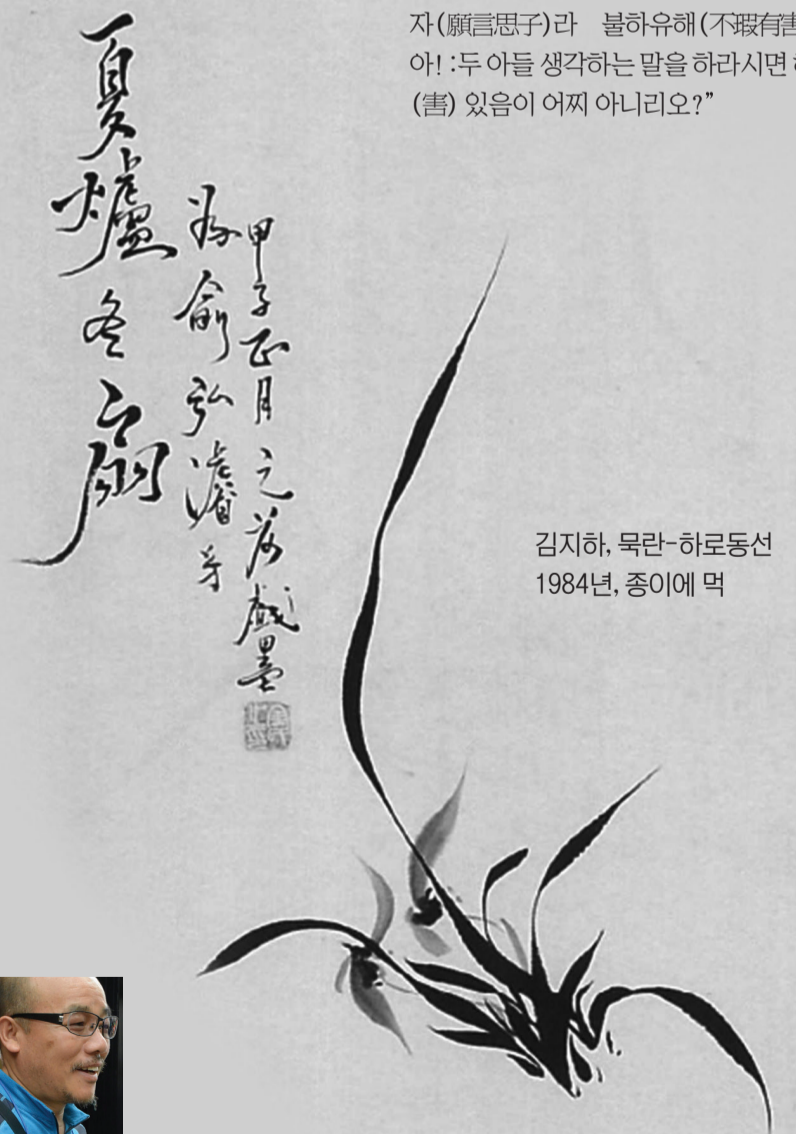 자(願言思子)라 불하유해(不瑕有害
아! :두 아들 생각하는 말을 하라시면
(害) 있음이 어찌 아니리오?”
夏爐冬扇
為兪弘濬
甲子正月 戱墨
김지하, 묵란-하로동선
1984년, 종이에 먹